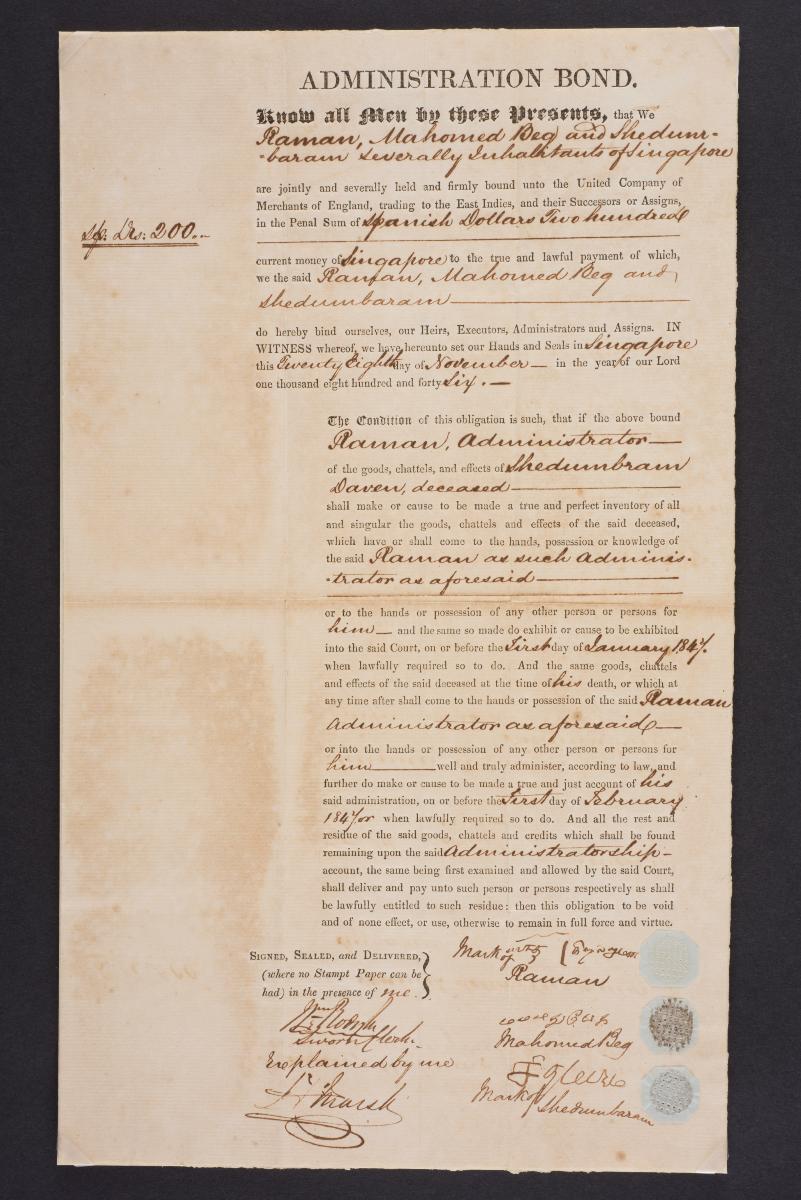 ADMINISTRATION BOND.
Know all Men by these Presents, that We
Raman, Mahomed Beg and Shedum-
-baram Severally Inhabitants of Singapore
are jointly and severally held and firmly bound unto the United Company of
Merchants of England, trading to the East Indies, and their Successors or Assigns,
in the Penal Sum of Spanish Dollars Two hundred
Sp. Drs. 200.-
current money of Singapore to the true and lawful payment of which,
we the said Raman, Mahomed Beg and
Shedumbaram
do hereby bind ourselves, our Heirs, Executors, Administrators and Assigns. IN
WITNESS whereof, we have hereunto set our Hands and Seals in Singapore
this Twenty Eighth day of November in the year of our Lord
one thousand eight hundred and forty Six.
The Condition of this obligation is such, that if the above bound
Raman, Administrator
of the goods, chattels, and effects of Shedumbram
Daven, deceased
shall make or cause to be made a true and perfect inventory of all
and singular the goods, chattels and effects of the said deceased,
which have or shall come to the hands, possession or knowledge of
the said Raman as such Adminis-
-trator as aforesaid
or to the hands or possession of any other person or persons for
him and the same so made do exhibit or cause to be exhibited
into the said Court, on or before the First day of January 1847.
when lawfully required so to do. And the same goods, chattels
and effects of the said deceased at the time of his death, or which at
any time after shall come to the hands or possession of the said Raman
Administrator as aforesaid
or into the hands or possession of any other person or persons for
him well and truly administer, according to law, and
further do make or cause to be made a true and just account of his
said administration, on or before the First day of February
1847 or when lawfully required so to do. And all the rest and
residue of the said goods, chattels and credits which shall be found
remaining upon the said Administratorship
account, the same being first examined and allowed by the said Court,
shall deliver and pay unto such person or persons respectively as shall
be lawfully entitled to such residue: then this obligation to be void
and of none effect, or use, otherwise to remain in full force and virtue.
SIGNED, SEALED, and DELIVERED,
(where no Stampt Paper can be
had) in the presence of me.
Sworn Clerk.
Explained by me
Mark of
Raman
Mahomed Beg
Mark of Shedumbaram